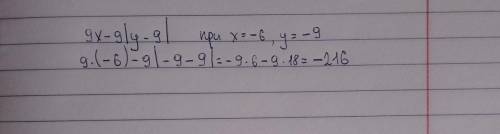 9x-9|y-9| при x=-6, y=-9
9·(-6)-9|-9-9|=-9·6-9·18=-216